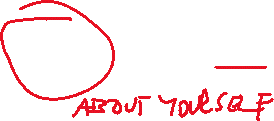 ABOUT YOURSELF